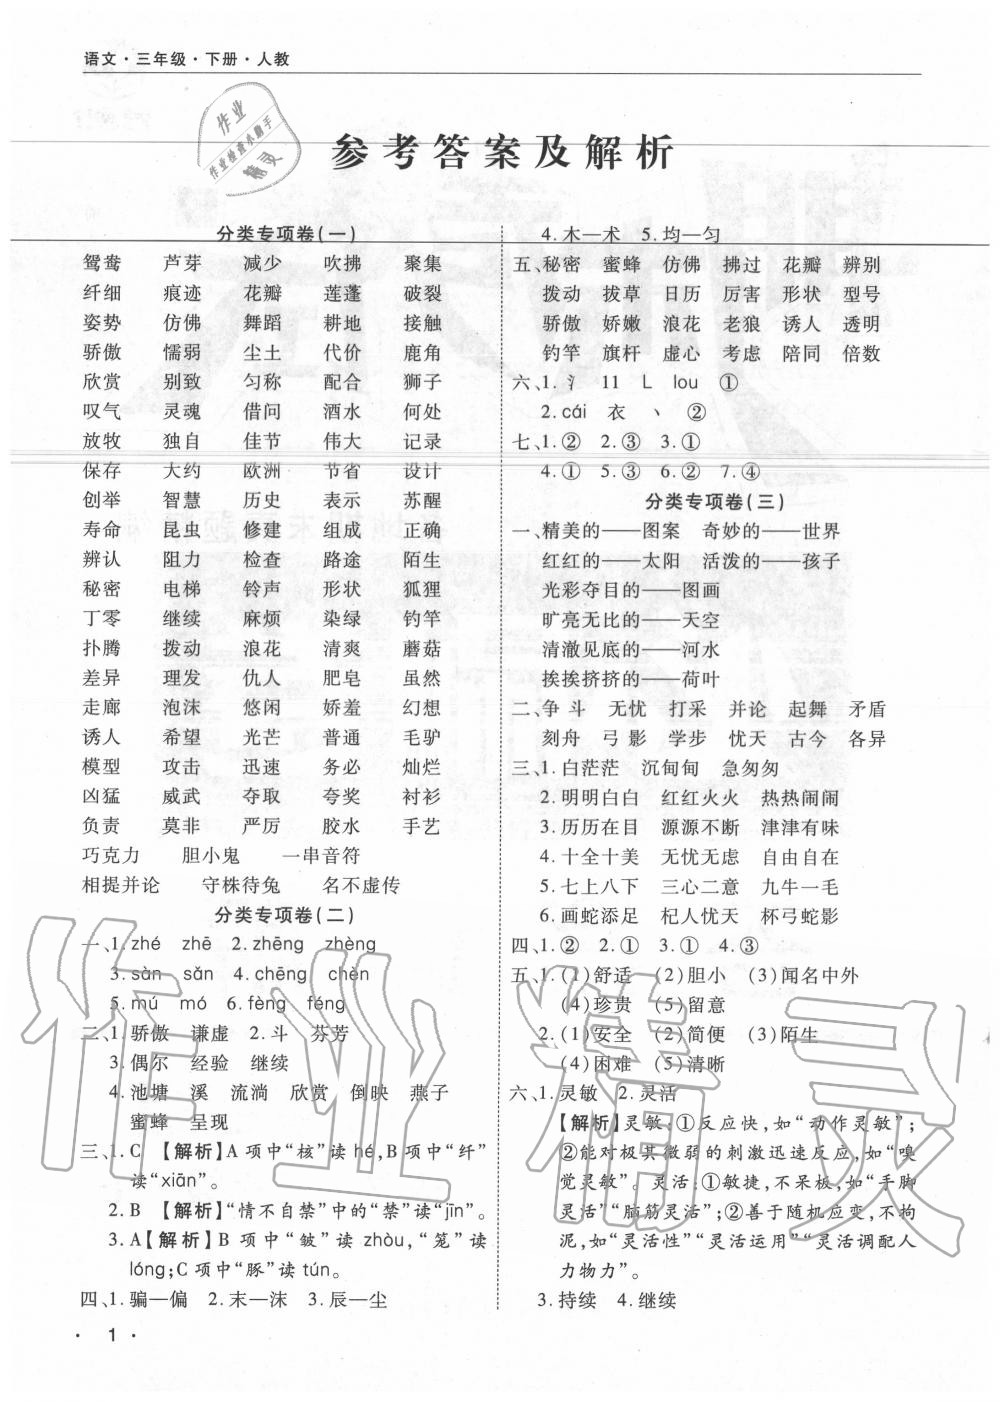 语文·三年级·下册·人教
作业
作业检查小助手
精灵
参考答案及解析
分类专项卷(一)
鸳鸯 芦芽 减少 吹拂 聚集
纤细 痕迹 花瓣 莲蓬 破裂
姿势 仿佛 舞蹈 耕地 接触
骄傲 懦弱 尘土 代价 鹿角
欣赏 别致 匀称 配合 狮子
叹气 灵魂 借问 酒水 何处
放牧 独自 佳节 伟大 记录
保存 大约 欧洲 节省 设计
创举 智慧 历史 表示 苏醒
寿命 昆虫 修建 组成 正确
辨认 阻力 检查 路途 陌生
秘密 电梯 铃声 形状 狐狸
丁零 继续 麻烦 染绿 钓竿
扑腾 拨动 浪花 清爽 蘑菇
差异 理发 仇人 肥皂 虽然
走廊 泡沫 悠闲 娇羞 幻想
诱人 希望 光芒 普通 毛驴
模型 攻击 迅速 务必 灿烂
凶猛 威武 夺取 夸奖 衬衫
负责 莫非 严厉 胶水 手艺
巧克力 胆小鬼 一串音符
相提并论 守株待兔 名不虚传
分类专项卷(二)
一、1.zhé zhē 2.zhēng zhèng
3.sàn sǎn 4.chēng chèn
5.mú mó 6.fèng féng
二、1.骄傲 谦虚 2.斗 芬芳
3.偶尔 经验 继续
4.池塘 溪 流淌 欣赏 倒映 燕子
蜜蜂 呈现
三、1.C 【解析】A项中“核”读hé,B项中“纤”
读“xiān”。
2.B 【解析】“情不自禁”中的“禁”读“jīn”。
3.A【解析】B项中“皱”读zhòu,“笼”读
lóng;C项中“豚”读tún。
四、1.骗—偏 2.末—沫 3.辰—尘
4.木—术 5.均—匀
五、秘密 蜜蜂 仿佛 拂过 花瓣 辨别
拨动 拔草 日历 厉害 形状 型号
骄傲 娇嫩 浪花 老狼 诱人 透明
钓竿 旗杆 虚心 考虑 陪同 倍数
六、1.氵 11 L lou ①
2.cái 衣 丶 ②
七、1.② 2.③ 3.①
4.① 5.③ 6.② 7.④
分类专项卷(三)
一、精美的——图案 奇妙的——世界
红红的——太阳 活泼的——孩子
光彩夺目的——图画
旷亮无比的——天空
清澈见底的——河水
挨挨挤挤的——荷叶
二、争斗 无忧 打采 并论 起舞 矛盾
刻舟 弓影 学步 忧天 古今 各异
三、1.白茫茫 沉甸甸 急匆匆
2.明明白白 红红火火 热热闹闹
3.历历在目 源源不断 津津有味
4.十全十美 无忧无虑 自由自在
5.七上八下 三心二意 九牛一毛
6.画蛇添足 杞人忧天 杯弓蛇影
四、1.② 2.① 3.① 4.③
五、1.(1)舒适 (2)胆小 (3)闻名中外
(4)珍贵 (5)留意
2.(1)安全 (2)简便 (3)陌生
(4)困难 (5)清晰
六、1.灵敏 2.灵活
【解析】灵敏:①反应快,如“动作灵敏”;
②能对极其微弱的刺激迅速反应,如“嗅
觉灵敏”。灵活:①敏捷,不呆板,如“手脚
灵活”“脑筋灵活”;②善于随机应变,不拘
泥,如“灵活性”“灵活运用”“灵活调配人
力物力”。
3.持续 4.继续
作业精灵
· 1 ·